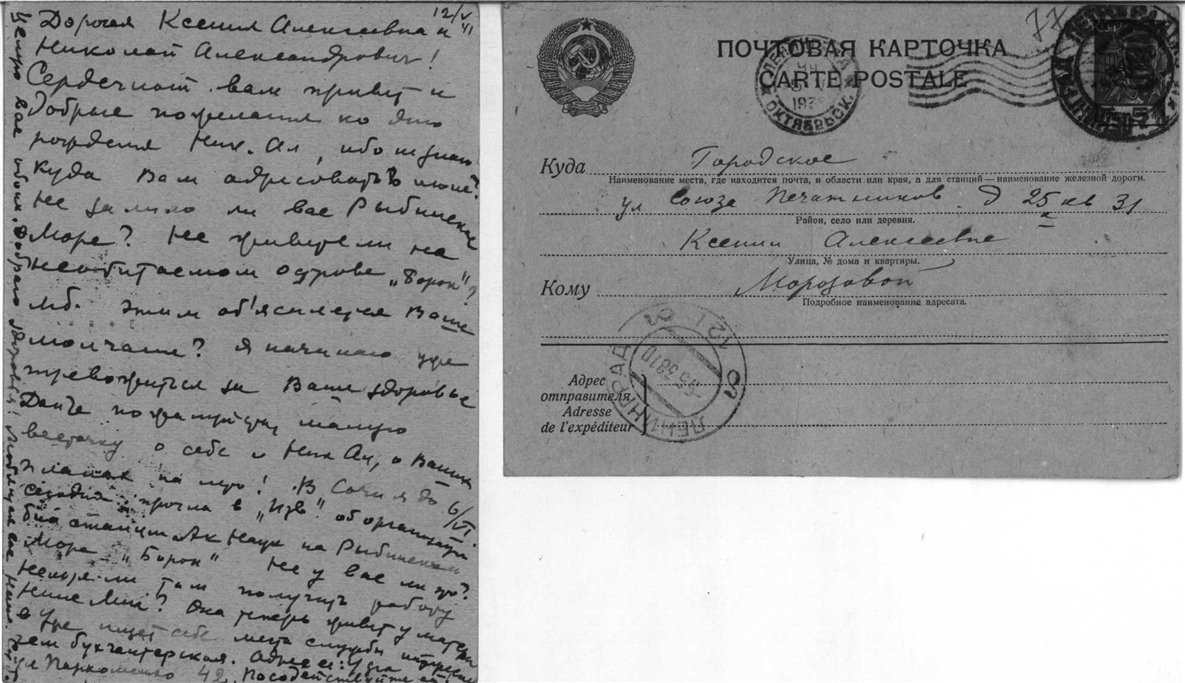 12/V 41
Дорогая Ксения Алексеевна и
Николай Александрович!
Сердечный вам привет и
добрые пожелания ко дню
рождения Ник. Ал, ибо не знаю
куда Вам адресовать в июне?
Не залило ли вас Рыбинское
море? Не живете ли на
необитаемом острове „Борок"?
мб. этим объясняется Ваше
молчание? Я начинаю уже
тревожиться за Ваше здоровье
Дайте пожалуйста, малую
весточку о себе и Ник Ал, о Ваших
планах на лето! В Сочи я до 6/VI.
сегодня прочла в „Изв" об организации
био станции Ак Наук на Рыбинском
Море - „Борок" Не у вас ли это?
Нельзя ли там получить работу
Нине Мих? Она теперь живет у матери
в Уфе ищет себе место службы
бухгалтерская. Адрес ее: Уфа
ул Пархоменко 42. Посодействуйте ей!
Целую вас обоих. Доброго здоровья! Любящая вас
ПОЧТОВАЯ КАРТОЧКА
CARTE POSTALE
77
ОКТЯБРЬСК.
ЛЕНИНГРАД
Куда Городское
Наименование места, где находится почта, и области или края, а для станций — наименование железной дороги.
ул Союза Печатников д 25 кв 31
Район, село или деревня.
Ксении Алексеевне
Улица, № дома и квартиры.
Кому Морозовой
Подробное наименование адресата.
Адрес
отправителя
Adresse
de l'expéditeur
ЛЕНИНГРАД